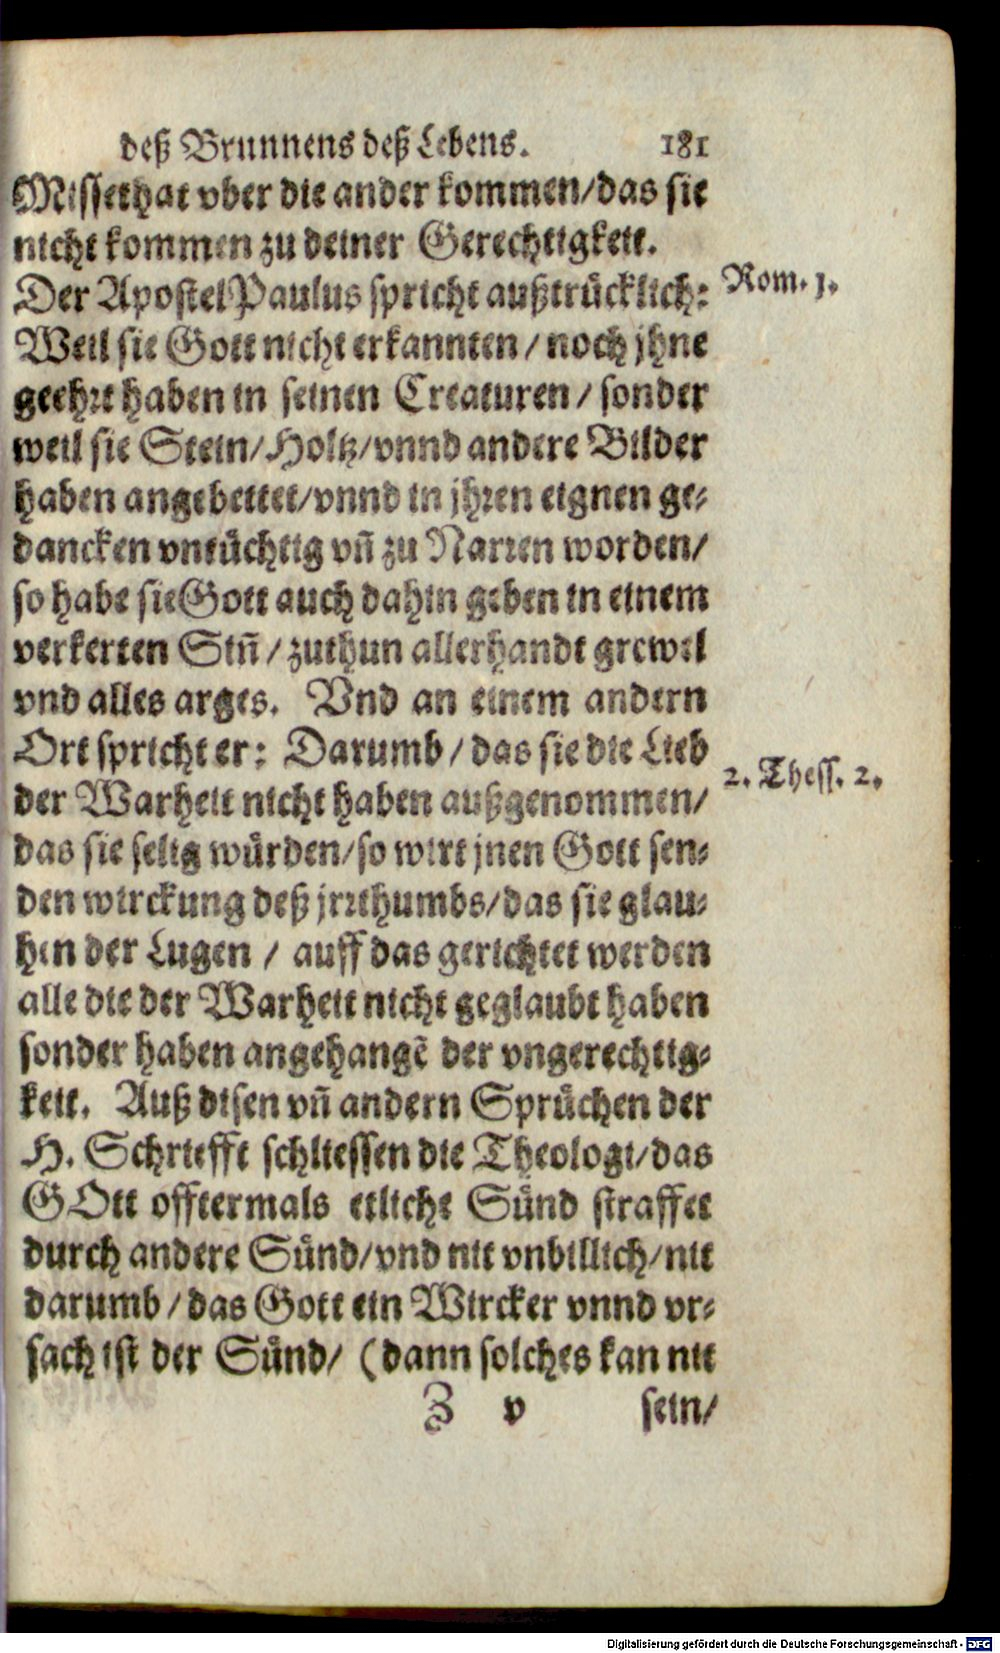 deß Brunnens deß Lebens. 181
Missethat vber die ander kommen/das sie
nicht kommen zu deiner Gerechtigkeit.
Der Apostel Paulus spricht außtrücklich: Rom. 1.
Weil sie Gott nicht erkannten/ noch jhne
geehrt haben in seinen Creaturen/ sonder
weil sie Stein/Holtz/vnnd andere Bilder
haben angebettet/vnnd in jhren eignen ge-
dancken vntüchtig vñ zu Narren worden/
so habe sie Gott auch dahin geben in einem
verkerten Siñ/ zuthun allerhandt grewel
vnd alles arges. Vnd an einem andern
Ort spricht er: Darumb/ das sie die Lieb
der Warheit nicht haben außgenommen/ 2. Thess. 2.
das sie selig würden/so wirt jnen Gott sen-
den wirckung deß jrrthumbs/das sie glau-
ben der Lugen/ auff das gerichtet werden
alle die der Warheit nicht geglaubt haben
sonder haben angehangẽ der vngerechtig-
keit. Auß disen vñ andern Sprüchen der
H. Schriefft schliessen die Theologi/das
GOtt offtermals etliche Sünd straffet
durch andere Sünd/vnd nit vnbillich/nit
darumb/das Gott ein Wircker vnnd vr-
sach ist der Sünd/ (dann solches kan nit
Z v sein/
Digitalisierung gefördert durch die Deutsche Forschungsgemeinschaft - DFG